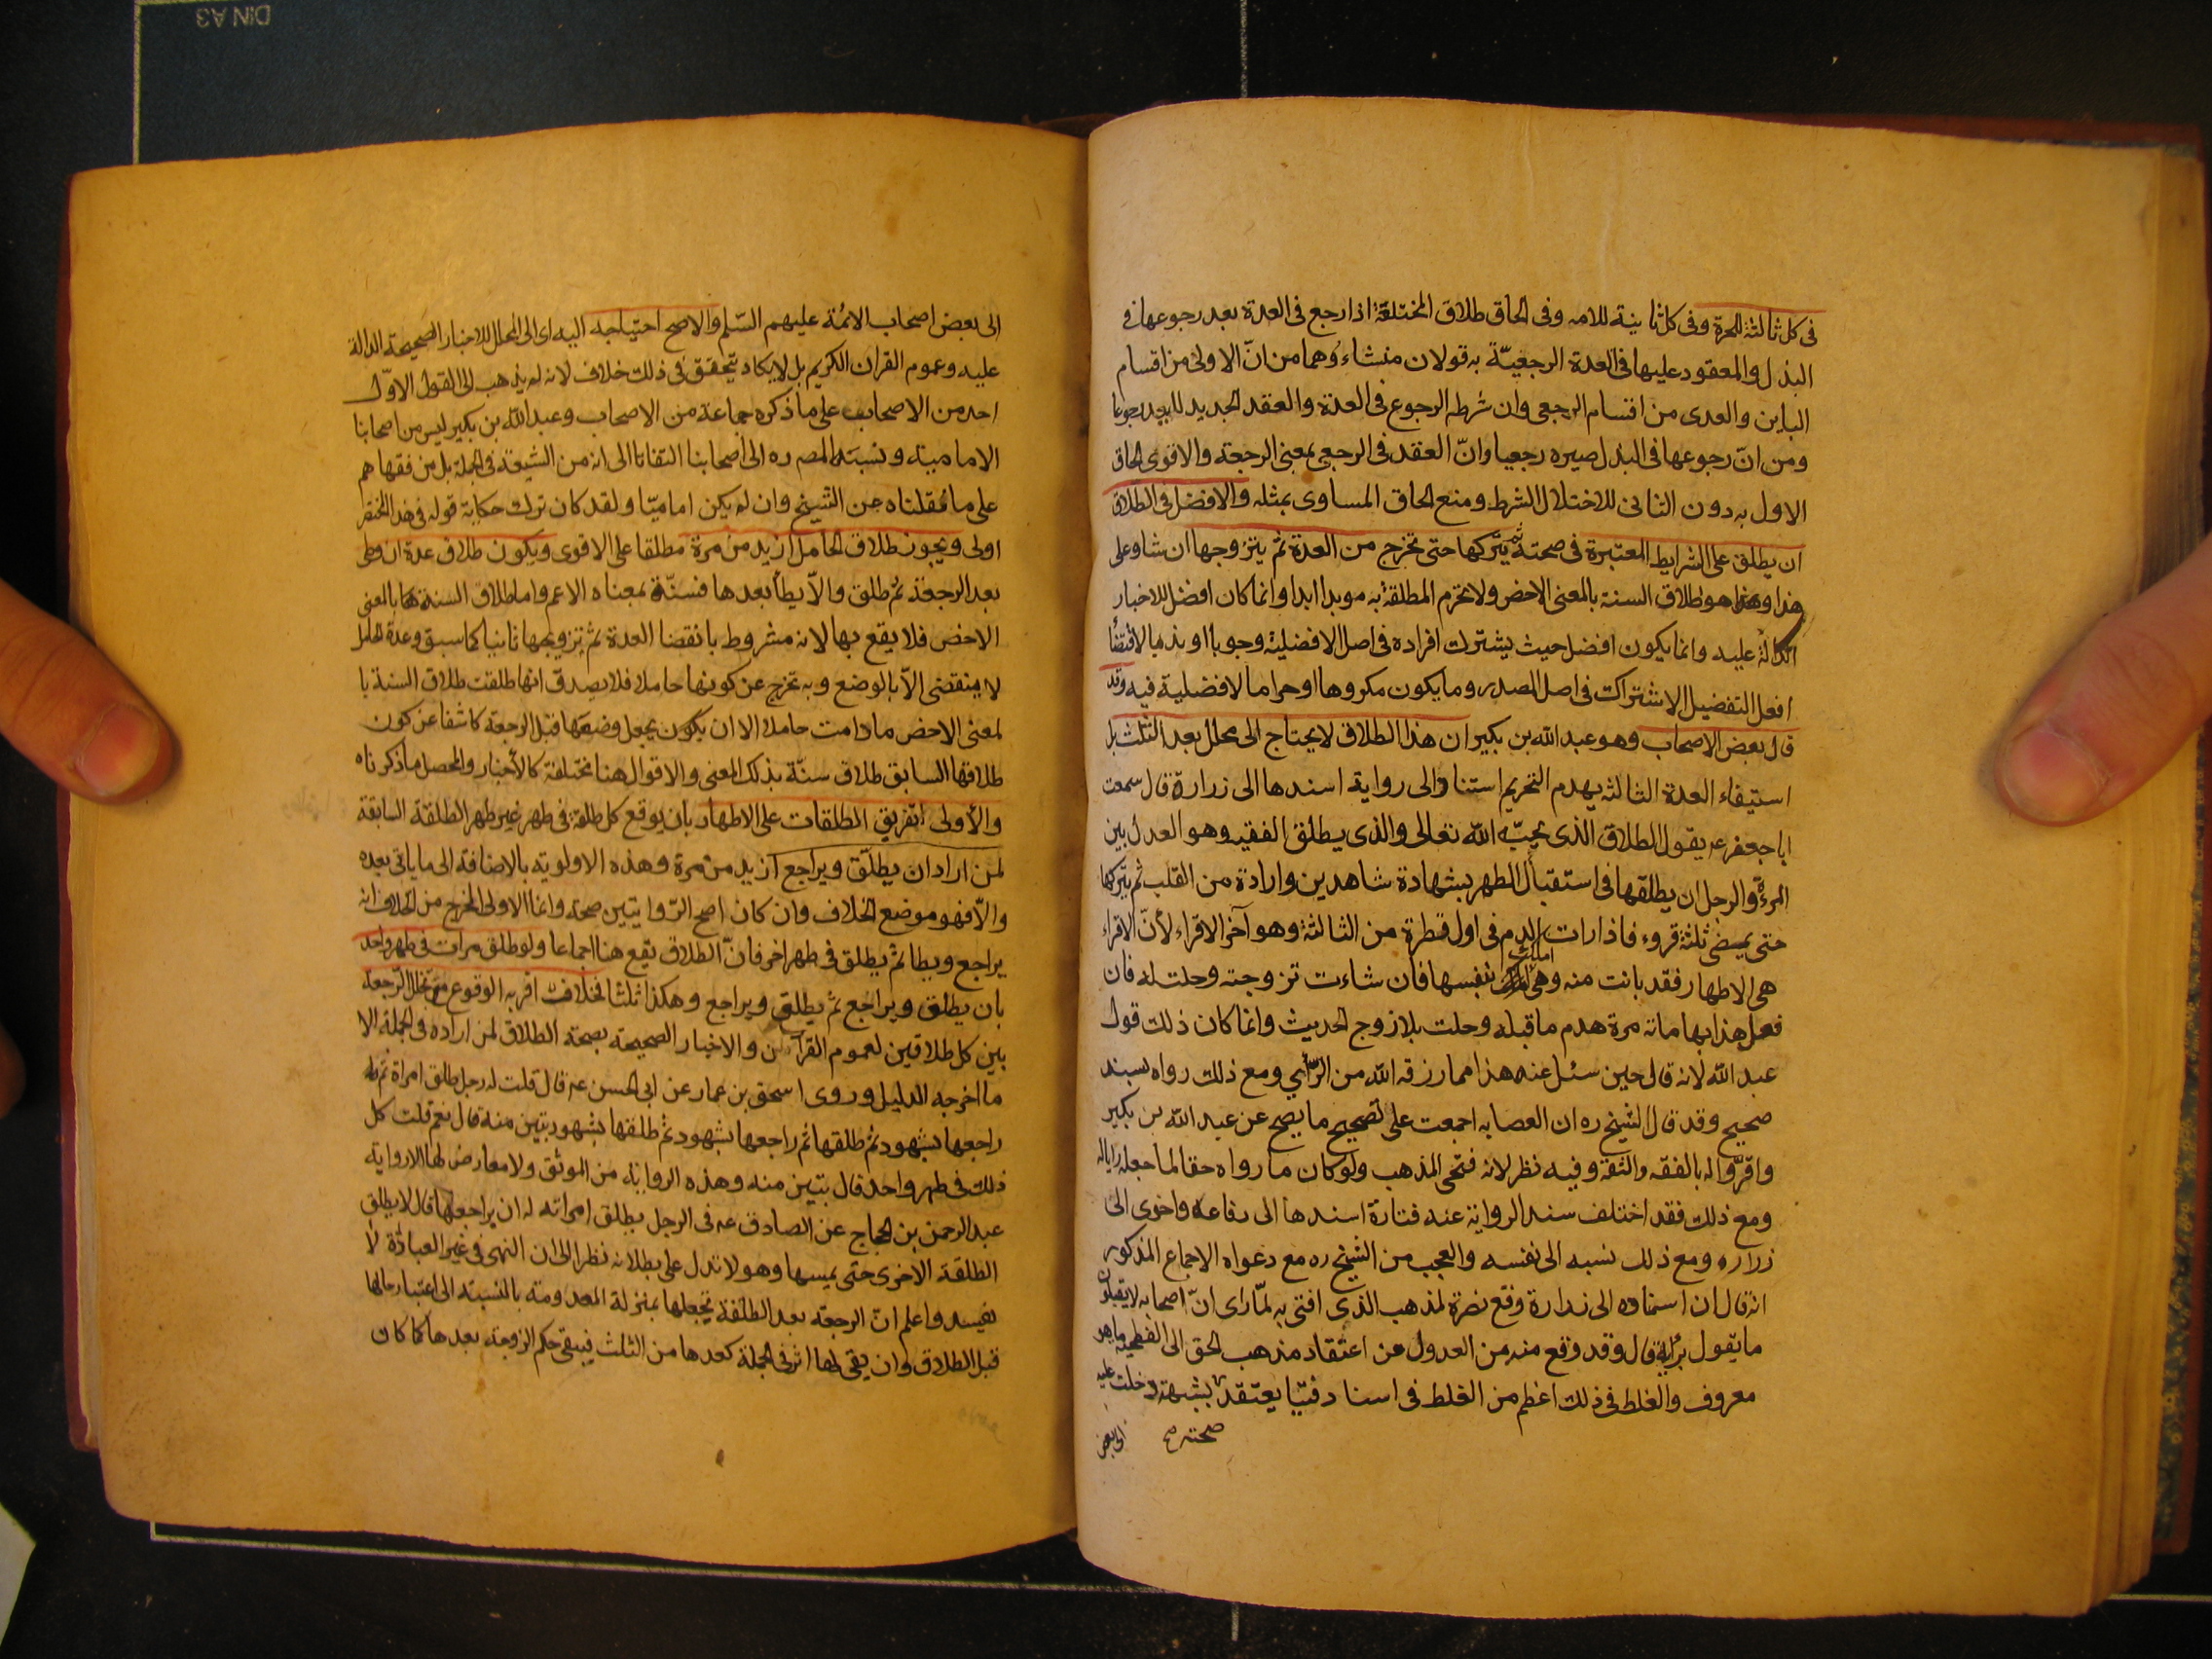 فى كل ثالثة للحرة وفى كل ثانية للامه وفى الحاق طلاق المختلعة اذا رجع فى العدة بعد رجوعها فى
البذل والمعقود عليها فى العدة الرجعيّة به قولان منشاءوهما من انّ الاولى من اقسام
الباين والعدى من اقسام الرجعى وان شرطه الرجوع فى العدة والعقد الجديد لا يعد رجوعا
ومن انّ رجوعها فى البذل صيره رجعيا وانّ العقد فى الرجعى بمعنى الرجعة والاقوى الحاق
الاول به دون الثانى للاختلال الشرط ومنع الحاق المساوى بمثله والافضل فى الطلاق
ان يطلق على الشرايط المعتبرة فى صحته ثم يتركها حتى تخرج من العدة ثم يتزوجها ان شاو على
هذا وهذا هو طلاق السنة بالمعنى الاخص ولا تحرم المطلقة به موبدا ابدا وانما كان افضل للاخبار
الدالة عليه وانما يكون افضل حيث يشترك افراده فى اصل الافضلية وجوبا او ندبا لاقتضأ
افعل التفضيل الاشتراك فى اصل المصدر وما يكون مكروها او حراما لا افضلية فيه وقد
قال بعض الاصحاب وهو عبد الله بن بكير ان هذا الطلاق لا يحتاج الى محلل بعد الثلث بل
استيفاء العدة الثالثه يهدم التحريم استنادا الى رواية اسندها الى زرارة قال سمعت
ابا جعفر عه يقول الطلاق الذى يحبّه الله تعالى والذى يطلق الفقيه وهو العدل بين
المرءة والرجل ان يطلقها فى استقبال الطهر بشهادة شاهدين وارادة من القلب ثم يتركها
حتى يمضى ثلثة قروء فاذا رات الدم فى اول قطرة من الثالثة وهو آخر الاقراء لأنّ الاقراء
هى الاطهار فقد بانت منه وهى املك بنفسها فان شاءت تزوجته وحلت له فان
فعل هذا بها ماته مرة هدم ما قبله وحلت بلا زوج الحديث وانما كان ذلك قول
عبد الله لانه قال حين سئل عنه هذا مما رزقه الله من الرّأي ومع ذلك رواه بسند
صحيح وقد قال الشيخ ره ان العصابه اجمعت على تصحيح ما يصح عن عبد الله بن بكير
واقرّوا له بالفقه والثقة وفيه نظر لانه فتحى المذهب ولو كان ما رواه حقا لما جعله رايا له
ومع ذلك فقد اختلف سند الرواية عنه فتارة اسندها الى رفاعه واخرى الى
زراره ومع ذلك نسبه الى نفسه والعجب من الشيخ ره مع دعواه الاجماع المذكور
انه قال ان اسناده الى زرارة وقع نصرة لمذهب الذى افتى به لمّا راى انّ اصحابه لا يقبلون
ما يقول برايه قال وقد وقع منه من العدول عن اعتقاد مذهب الحق الى الفطحية ما هو
معروف والغلط فى ذلك اعظم من الغلط فى اسناد فتيا يعتقد بشبهة دخلت عليه
صحته صح
الى بعض
الى بعض اصحاب الائمة عليهم السّلم والاصح احتياجه اليه اى الى المحلل للاخبار الصحيحة الدالة
عليه وعموم القران الكريم بل لا يكاد يتحقق فى ذلك خلاف لانه لم يذهب الى القول الاوّل
احد من الاصحاب على ما ذكره جماعة من الاصحاب وعبد الله بن بكير ليس من اصحابنا
الاماميه ونسبته المصره الى اصحابنا التفاتا الى انه من الشيعة فى الجملة بل من فقهاهم
على ما نقلناه عن الشيخ وان لم يكن اماميّا ولقد كان ترك حكاية قوله فى هذا المختصر
اولى ويجوز طلاق الحامل ازيد من مرة مطلقا على الاقوى ويكون طلاق عدة ان وطى
بعد الرجعة ثم طلق والّا يطأ بعدها فسنّة بمعناه الاعم واما طلاق السنة بالمعنى
الاخص فلا يقع بها لانه مشروط بانقضا العدة ثم تزويجها ثانيا كما سبق وعدة الحامل
لا ينقضى الّا بالوضع وبه تخرج عن كونها حاملا فلا يصدق انها طلقت طلاق السنة با
لمعنى الاخص ما دامت حاملا الا ان يكون يجعل وضعها قبل الرجعة كاشفا عن كون
طلاقها السابق طلاق سنّة بذلك المعنى والاقوال هنا مختلفة كالأخبار والمحصل ما ذكرناه
والأولى تفريق الطلقات على الاطهار بان يوقع كل طلقة فى طهر غير طهر الطلقة السابقة
لمن اراد ان يطلّق ويراجع ازيد من مرة وهذه الاولويته بالاضافة الى ما ياتى بعده
والّا فهو موضع الخلاف وان كان اصح الرّوايتين صحته وانما الاولى المخرج من الخلاف انه
يراجع ويطا ثم يطلق فى طهر اخر فانّ الطلاق يقع هنا اجماعا ولو طلق مرات فى طهر واحد
بان يطلق ويراجع ثم يطلق ويراجع وهكذا ثلثا فخلاف اقربه الوقوع مع تخلل الرّجعة
بين كل طلاقين لعموم القران والاخبار الصحيحة بصحة الطلاق لمن اراده فى الجملة الا
ما اخرجه الدليل وروى اسحق بن عمار عن ابى الحسن عه قال قلت له رجل طلق امراة ثم
راجعها بشهود ثم طلقها ثم راجعها بشهود ثم طلقها بشهود تبين منه قال نعم قلت كل
ذلك فى طهر واحد قال تبين منه وهذه الرواية من الموثق ولا معارض لها الا رواية
عبد الرحمن بن الحجاج عن الصادق عه فى الرجل يطلق امراته له ان يراجعها قال لا يطلق
الطلقة الاخرى حتى يمسها وهو لا تدل على بطلانه نظرا الى ان النهى فى غير العبادة لا
يفسد واعلم انّ الرجعة بعد الطلقة تجعلها بمنزلة المعدومة بالنسبته الى اعتبار حالها
قبل الطلاق وان بقى لها اثر فى الجملة كعدها من الثلث فيبقى حكم الزوجة بعدها كما كان